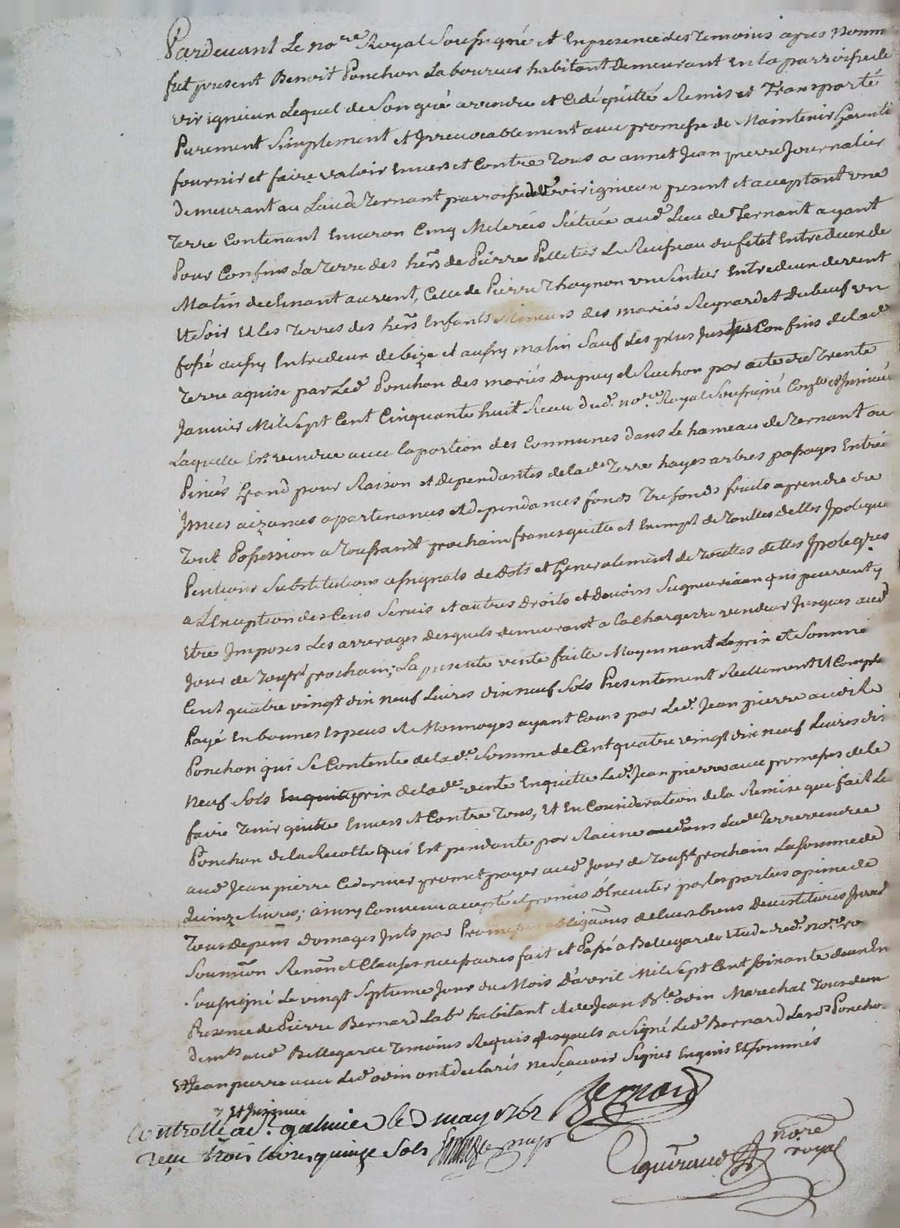 Pardevant Le no.re Royal Soussigné et En presence des Temoins apres Nomm
fut present Benoit Ponchon Laboureur habitant Demeurant En la parroisse de
virignieux Lequel de Son gré a vendu et Cedé quitté Remis et Transporté
Purement Simplement et Irrevocablement avec promesse de Maintenir Garentir
fournir et faire valoir Envers et Contre Tous a annet Jean pierre Journalier
Demeurant au Lieu de Ternant parroisse de virignieux present et acceptant une
Terre Contenant Environ Cinq Meterées Scituée aud. Lieu de Ternant ayant
Pour Confins La Terre des hers de Pierre Pelletier Le Ruisseau du fetel Entredeux de
Matin declinant au vent, Celle de Pierre Thaynon un Sentier Entredeux de vent
et Soir et les Terres des hers Enfants Mineurs des mariés Reynard et Dubeuf un
fossé aussy Entredeux de bize et aussy matin Sauf Les plus Justes Confins de lad.e
Terre aquise par Led. Ponchon des mariés Dupuy et Ruchon par acte du Trente
Janvier Mil Sept Cent Cinquante huit Receu dud. no.re Royal Soussigné Con.lé et Jnsinué
Laquelle Est vendue avec la portion des Communes dans Le hameau de Ternant ou
Pinés Grand pour Raison et dependantes de lad.e Terre hayes arbres passages Entrée
Jssues aizances apartenances et dependances fonds Trefonds fruits a prendre du
Tout Possession a Toussaint prochain franc quitte et Exempt de Toutes dettes Jpoteque
Pentions Substitutions assignats de Dots et Generalement de Toutes dettes Jpoteques
a L'Exception des Cens Servis et autres Droits et Devoirs Seigneuriaux qui peuvent y
Etre Jmposés Les arrerages desquels demeurant a la Charge du vendeur Jusques aud.
Jour de Touss.t prochain; La presente vente faite Moyennant Le prix et Somme
Cent quatre vingt dix neuf Livres dix neuf Sols Presentement Reellement et Compta
Payé En bonnes Especes et Monnoyes ayant Cours par Led. Jean pierre aud.
Ponchon qui Se Contente de lad.e Somme de Cent quatre vingt dix neuf Livres dix
neuf Sols prix de lad.e vente En quitte Led. Jean pierre avec promesse de le
faire Tenir quitte Envers et Contre Tous, Et En Consideration de la Remise que fait Le
Ponchon de la Recolte qui Est pendante par Racine dans lad.e Terre vendue
aud. Jean pierre Ce dernier promet payer aud. Jour de Touss.t prochain La Somme de
Quinze Livres; ainsy Convenu accepté et promis d'Executer par les parties a peine de
Tous depens domages Jnts par Promesses obligaons de leurs biens
Soumion Renon et Clauses necessaires fait et Passé a Bellegarde Etude dud. no.re ro
Soussigné Le vingt Septieme Jour du Mois d'avril Mil Sept Cent Soixante deux En
Presence de Pierre Bernard Labr habitant et de Jean B.te odin Marechal Tous deux
dem.ts aud. Bellegarde Temoins Requis desquels a Signé Led. Bernard Lesd. Poncho
Et Jean pierre avec Led. odin ont declarés ne Sçavoir Signer Enquis Et Sommés
Bernard
et Jnsinué
Controllé a St. galmier le 3 may 1762
reçu trois livres quinze Sols
no.re
royal